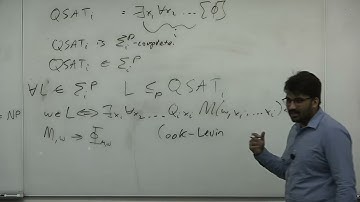 QSAT_i = ∃x_1 ∀x_2 ... {ϕ}
QSAT_i is Σ_i^P-complete.
QSAT_i ∈ Σ_i^P
∀L ∈ Σ_i^P L ≤_P QSAT_i
= NP w∈L ⇔ ∃x_1 ∀x_2 ... Q_i x_i M(w, x_1, ..., x_i)
M, w → Φ_{M,w} Cook-Levin